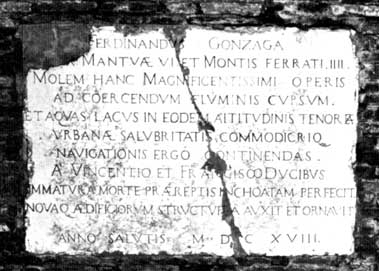 FERDINANDVS GONZAGA
MANTVÆ VI ET MONTIS FERRATI IIII.
MOLEM HANC MAGNIFICENTISSIMI OPERIS
AD COERCENDVM FLVMINIS CVRSVM.
ET AQVAS LACVS IN EODEM ALTITVDINIS TENORE
VRBANÆ SALVBRITATIS COMMODIORIO
NAVIGATIONIS ERGO CONTINENDAS.
A VINCENTIO ET FRANCISCO DVCIBVS
IMMATVRA MORTE PRÆREPTIS INCHOATAM PERFECIT
NOVAQ ÆDIFICIORVM STRVCTVRA AVXIT ET ORNAVIT
ANNO SALVTIS M DC XVIII.